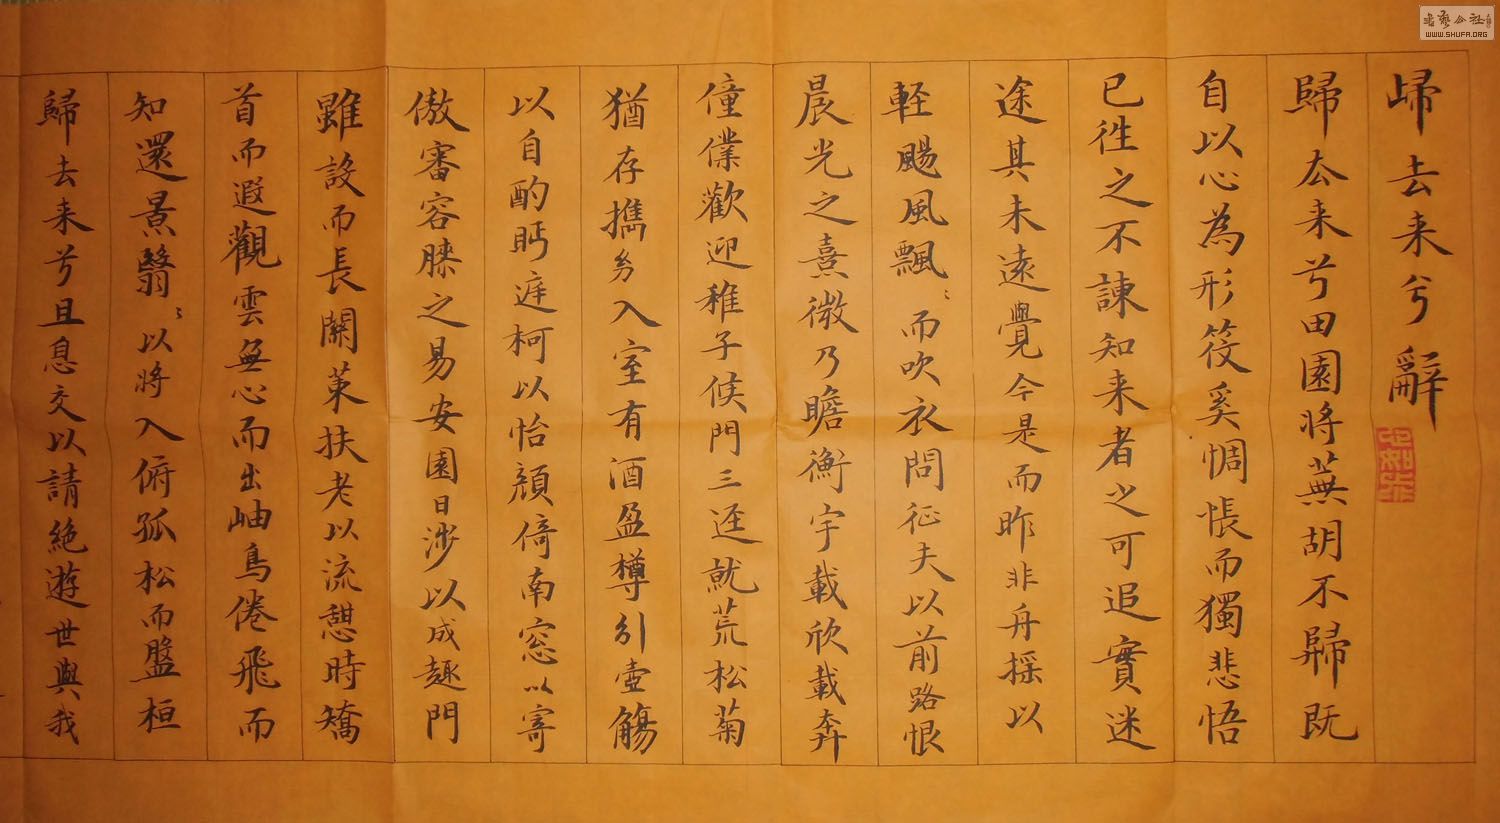 歸去来兮辭
歸去来兮田園將蕪胡不歸既
自以心為形役奚惆悵而獨悲悟
已往之不諫知来者之可追實迷
途其未遠覺今是而昨非舟揺以
軽颺風飄〻而吹衣問征夫以前路恨
晨光之熹微乃瞻衡宇載欣載奔
僮僕歡迎稚子候門三迳就荒松菊
猶存攜幼入室有酒盈樽引壺觴
以自酌眄庭柯以怡顔倚南窓以寄
傲審容膝之易安園日涉以成趣門
雖設而長關策扶老以流憩時矯
首而遐觀雲無心而出岫鳥倦飛而
知還景翳〻以將入俯孤松而盤桓
歸去来兮且息交以請絶遊世與我
WWW.SHUFA.ORG